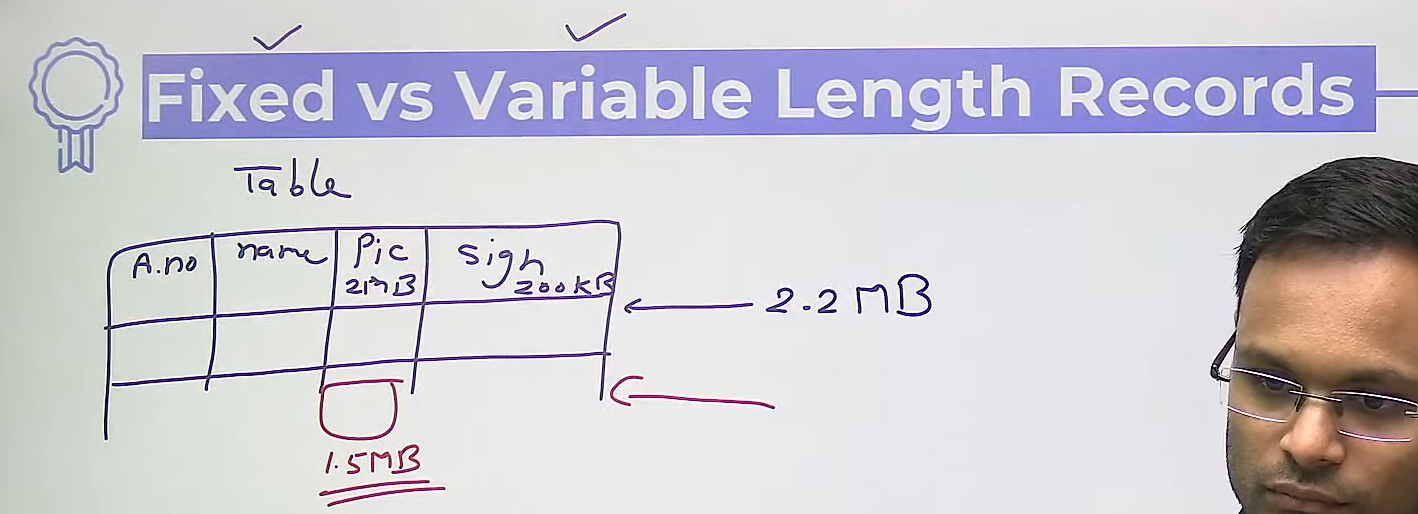 Fixed vs Variable Length Records
Table
A.no name Pic Sign
2MB 200KB
2.2 MB
1.5MB